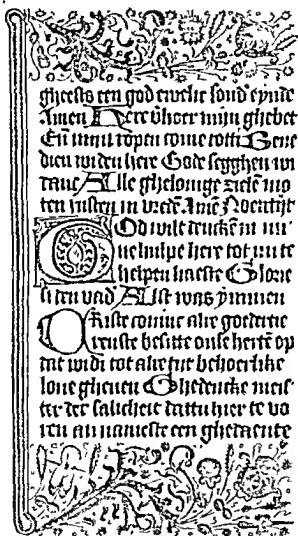 gheests een god ewelic sond eynde
Amen Here verhoer mijn ghebet
En mijn ropen come totti Bene
dien widen here Gode segghen wi
danc Alle ghelouige zielē mo
ten rusten in vredē Amē Noentijt
God wilt dencken in mi
ne hulpe here tot mi te
helpen haeste Glorie
si den vad Alst was ymmen
Criste coninc alre goedertie
renste besitte onse hertē op
dat wi di tot alre tijt behoerlike
loue gheuen Ghedencke meis
ter der salicheit dattu hier te vo
ren an nameste een ghedaente